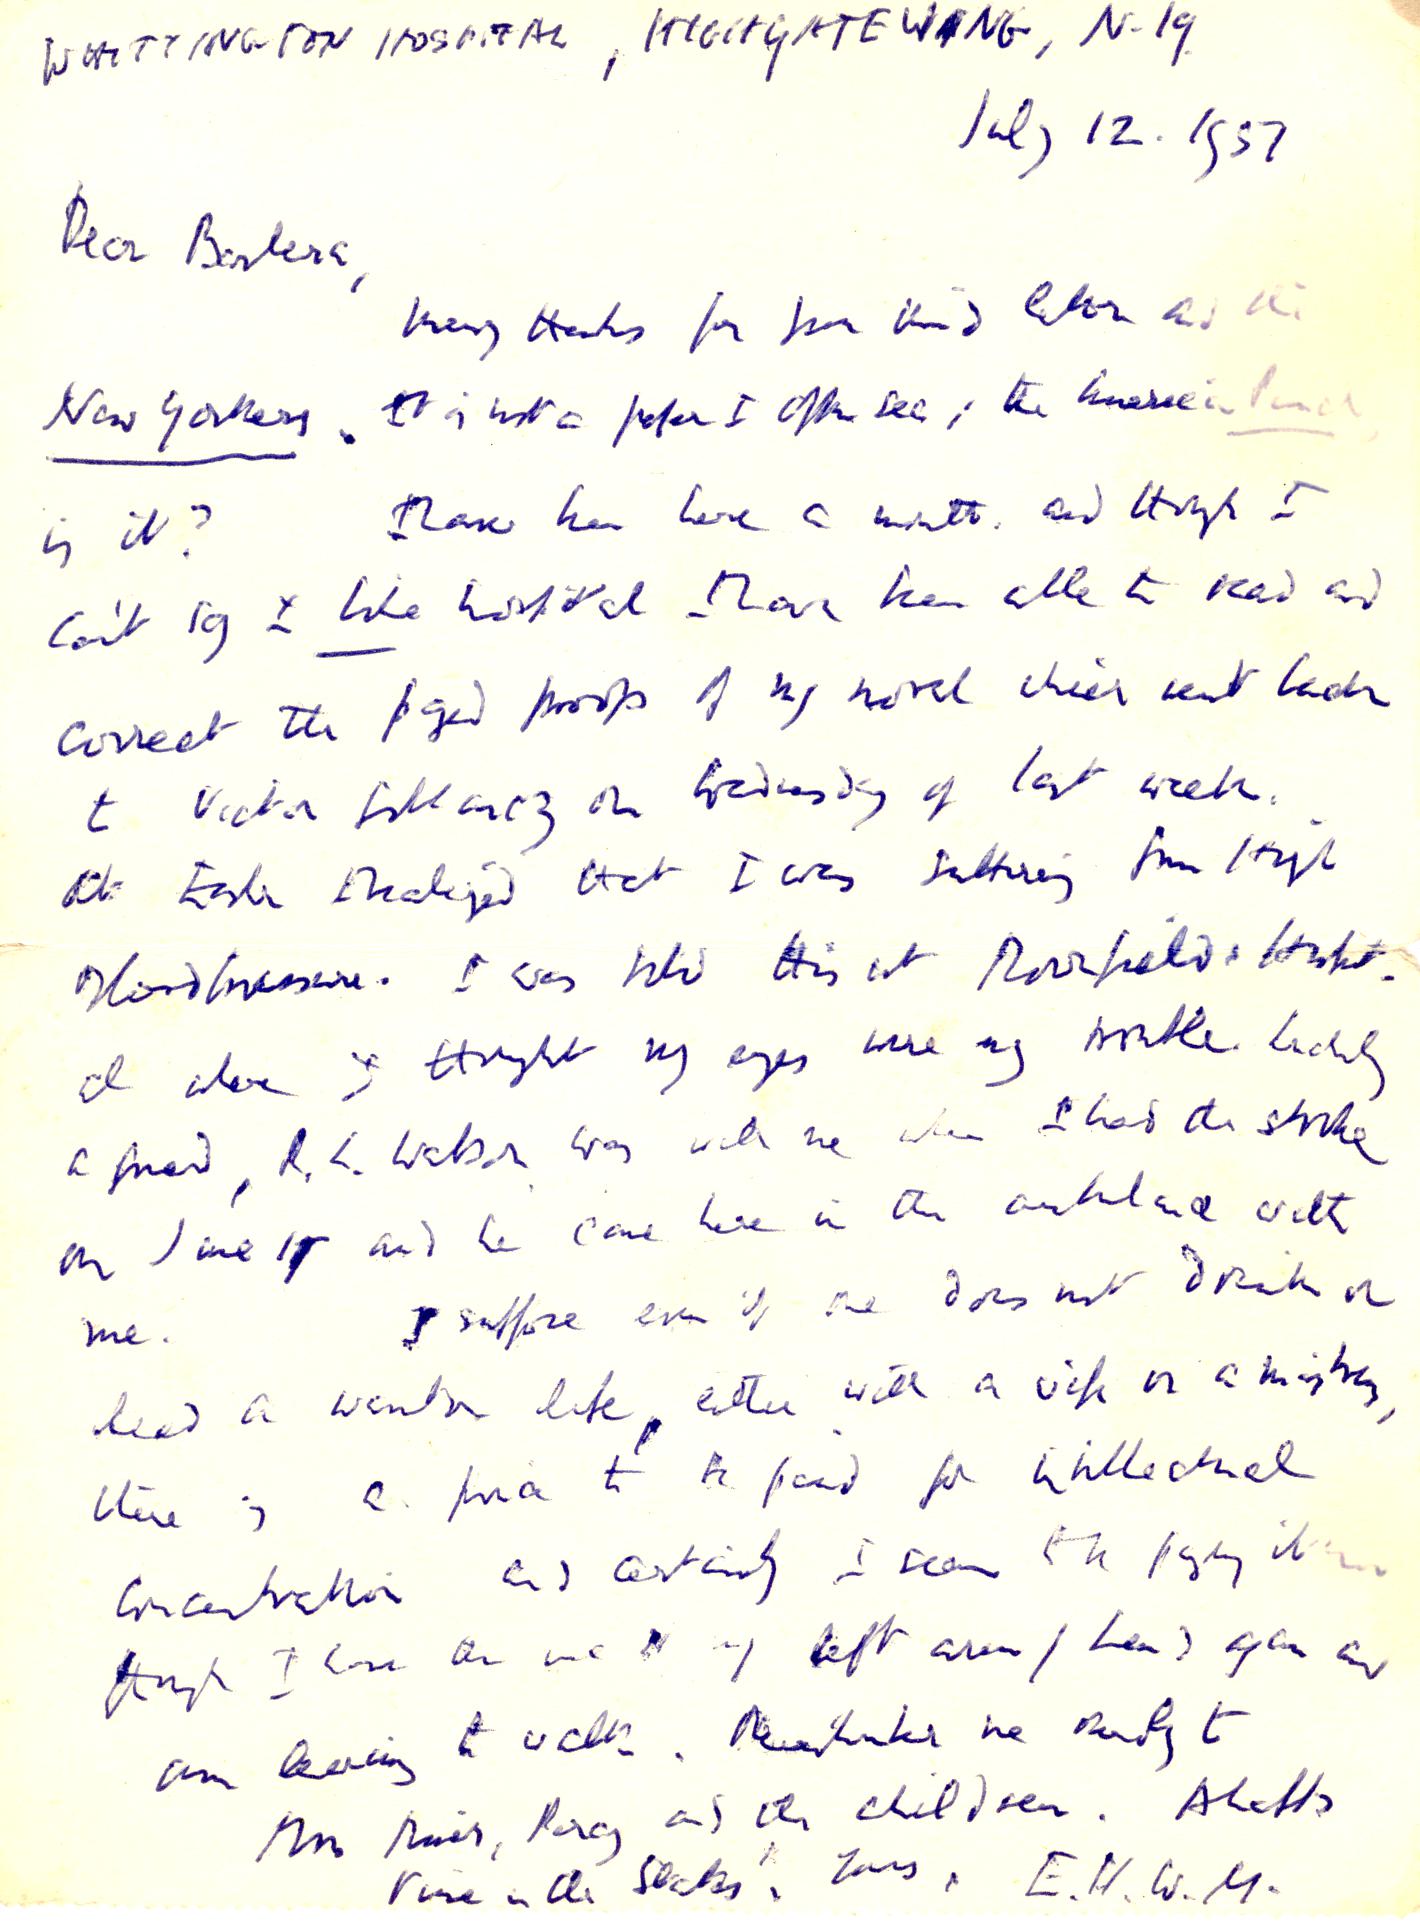 WHITTINGTON HOSPITAL, HIGHGATE WING, N.19
July 12. 1957
Dear Barbara,
Many thanks for your kind letter and the
New Yorkers. It is not a paper I often see; the American Punch,
is it? I have been here a month. and though I
can't say I like hospital I have been able to read and
correct the paged proofs of my novel which went back
to Victor Gollancz on Wednesday of last week.
At Easter I realized that I was suffering from High
Bloodpressure. I was told this at Moorfields Hospit-
al where I thought my eyes were my trouble. Luckily
a friend, R. L. Watson was with me when I had the stroke
on June 15 and he came here in the ambulance with
me. I suppose even if one does not drink or
lead a wanton life, either with a wife or a mistress,
there is a price to be paid for intellectual
concentration and certainly I seem to be paying it
though I have the use of my left arm / hand again and
am learning to walk. Remember me kindly to
Mrs Muir, Percy and the children. A hefty
time in the States. Yours, E.H.W.M.